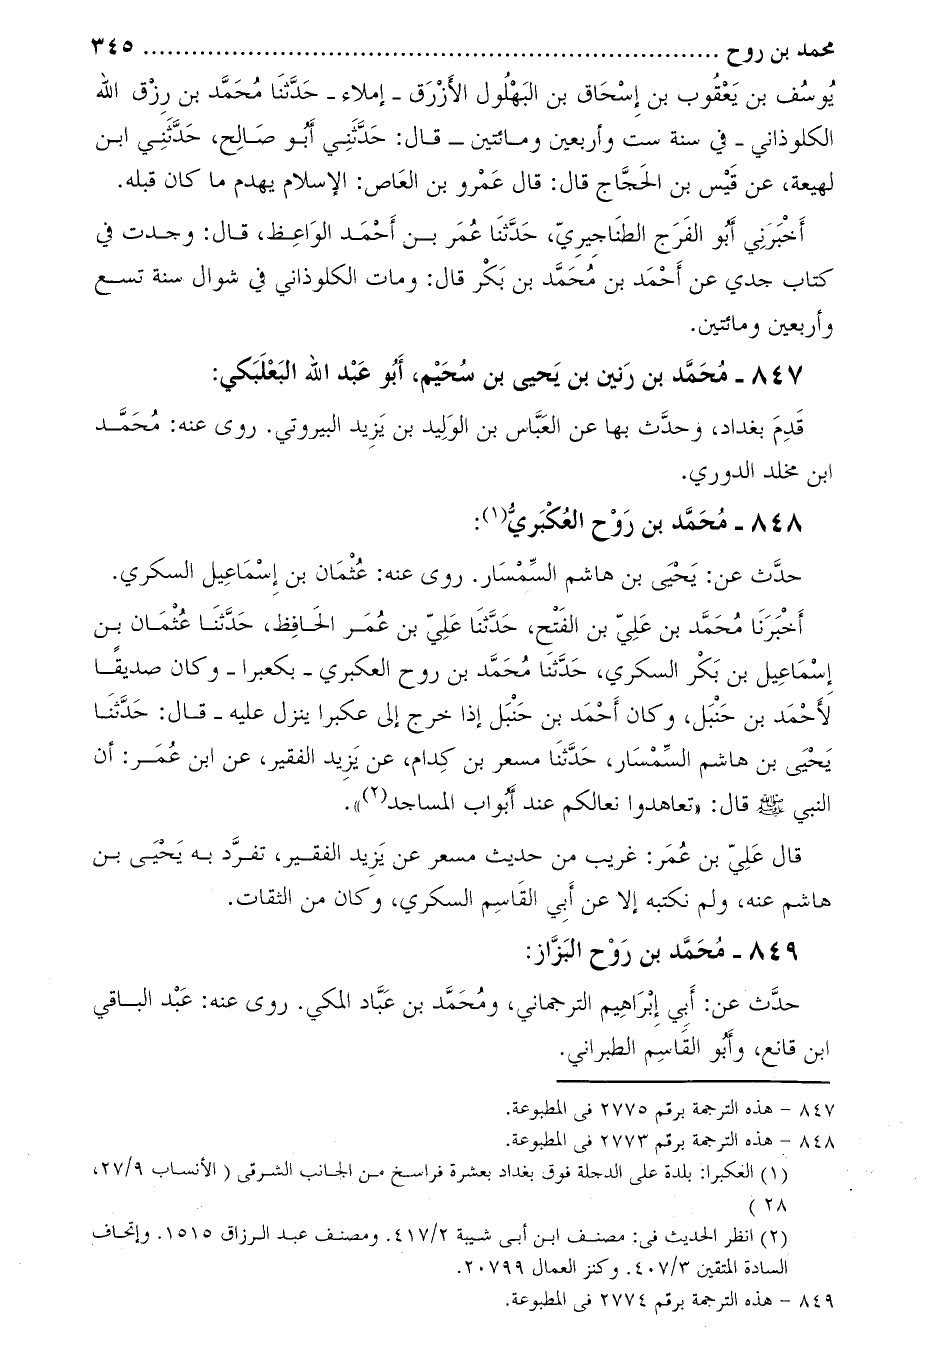 محمد بن روح ........................................................................ ٣٤٥
يُوسُف بن يَعْقُوب بن إِسْحَاق بن البَهْلُول الأَزْرَق ـ إملاء ـ حَدَّثَنَا مُحَمَّد بن رِزْق الله
الكلوذاني ـ في سنة ست وأربعين ومائتين ـ قال: حَدَّثَنِي أَبُو صَالِح، حَدَّثَنِي ابن
لهيعة، عن قَيْس بن الحَجَّاج قال: قال عَمْرو بن العَاص: الإسلام يهدم ما كان قبله.
أَخْبَرَنِي أَبُو الفَرَج الطنَاجِيرِيّ، حَدَّثَنَا عُمَر بن أَحْمَد الوَاعِظ، قال: وجدت في
كتاب جدي عن أَحْمَد بن مُحَمَّد بن بَكْر قال: ومات الكلوذاني في شوال سنة تسع
وأربعين ومائتين.
٨٤٧ ـ مُحَمَّد بن رَنين بن يَحيى بن سُحَيْم، أَبُو عَبْد الله البَعْلَبَكي:
قَدِمَ بغداد، وحدَّث بها عن العَبَّاس بن الوَلِيد بن يَزِيد البيروتي. روى عنه: مُحَمَّد
ابن مخلد الدوري.
٨٤٨ ـ مُحَمَّد بن رَوْح العُكْبَرِيُّ(١):
حدَّث عن: يَحْيَى بن هاشم السِّمْسَار. روى عنه: عُثْمَان بن إِسْمَاعِيل السكري.
أَخْبَرَنَا مُحَمَّد بن عَلِيّ بن الفَتْح، حَدَّثَنَا عَلِيّ بن عُمَر الحَافِظ، حَدَّثَنَا عُثْمَان بن
إِسْمَاعِيل بن بَكْر السكري، حَدَّثَنَا مُحَمَّد بن روح العكبري ـ بكعبرا ـ وكان صديقًا
لأَحْمَد بن حَنْبَل، وكان أَحْمَد بن حَنْبَل إذا خرج إلى عكبرا ينزل عليه ـ قال: حَدَّثَنَا
يَحْيَى بن هاشم السِّمْسَار، حَدَّثَنَا مسعر بن كِدام، عن يَزِيد الفقير، عن ابن عُمَر: أن
النبي ﷺ قال: «تعاهدوا نعالكم عند أَبْواب المساجد(٢)».
قال عَلِيّ بن عُمَر: غريب من حديث مسعر عن يَزِيد الفقير، تفرَّد به يَحْيَى بن
هاشم عنه، ولم نكتبه إلا عن أَبي القَاسِم السكري، وكان من الثقات.
٨٤٩ ـ مُحَمَّد بن رَوْح البَزَّاز:
حدَّث عن: أَبي إِبْرَاهِيم الترجماني، ومُحَمَّد بن عَبَّاد المكي. روى عنه: عَبْد الباقي
ابن قانع، وأَبُو القَاسِم الطبراني.
٨٤٧ – هذه الترجمة برقم ٢٧٧٥ فى المطبوعة.
٨٤٨ – هذه الترجمة برقم ٢٧٧٣ فى المطبوعة.
(١) العكبرا: بلدة على الدجلة فوق بغداد بعشرة فراسخ من الجانب الشرقى ( الأنساب ٢٧/٩،
٢٨ )
(٢) انظر الحديث فى: مصنف ابن أبى شيبة ٤١٧/٢. ومصنف عبد الرزاق ١٥١٥. وإتحاف
السادة المتقين ٤٠٧/٣. وكنز العمال ٢٠٧٩٩.
٨٤٩ – هذه الترجمة برقم ٢٧٧٤ فى المطبوعة.